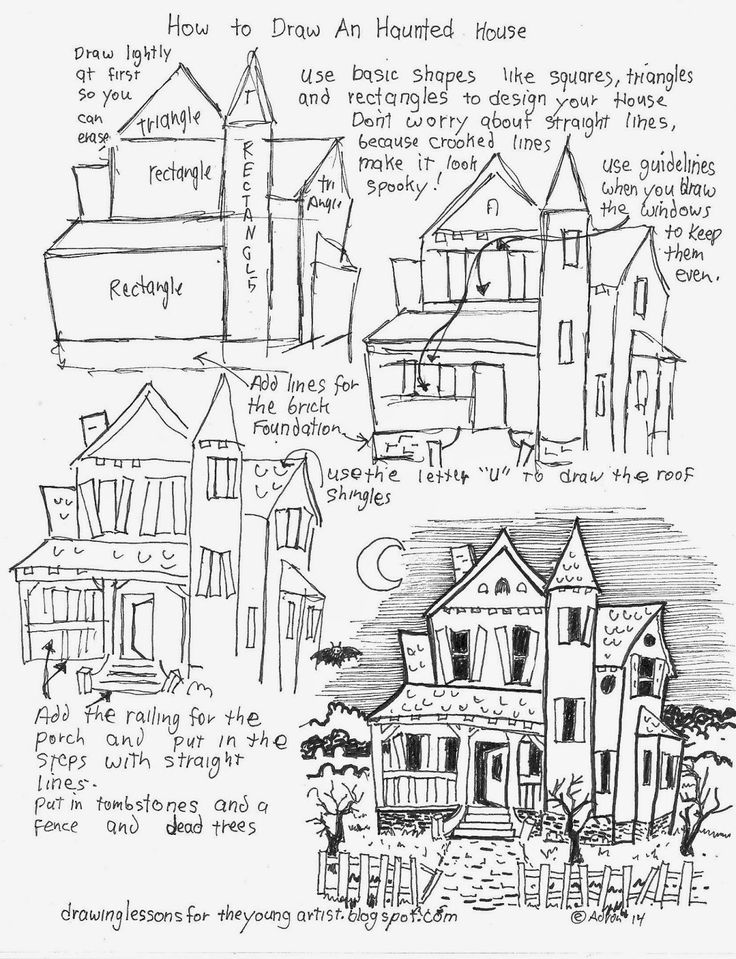 How to Draw An Haunted House
Draw lightly
at first
so you
can
erase
use basic shapes like squares, triangles
and rectangles to design your House
Dont worry about straight lines,
because crooked lines
make it look
spooky!
triangle
T
rectangle
RECTANGLE
tri
Angle
Rectangle
use guidelines
when you draw
the windows
to keep
them
even.
Add lines for
the brick
Foundation
use the letter "U" to draw the roof
shingles
Add the railing for the
porch and put in the
steps with straight
lines.
put in tombstones and a
fence and dead trees
drawinglessonsfortheyoungartist.blogspot.com
'14